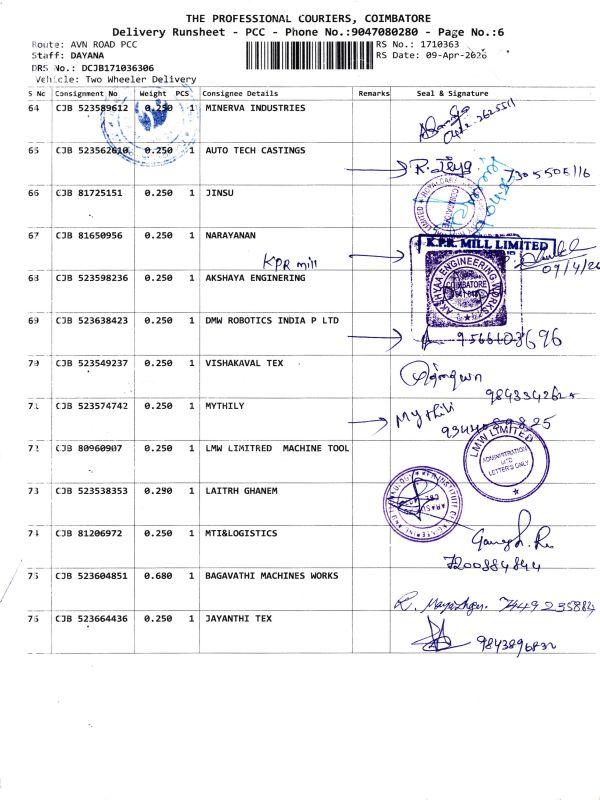 THE PROFESSIONAL COURIERS, COIMBATORE
Delivery Runsheet - PCC - Phone No.:9047080280 - Page No.:6
Route: AVN ROAD PCC RS No.: 1710363
Staff: DAYANA RS Date: 09-Apr-2026
DRS No.: DCJB171036306
Vehicle: Two Wheeler Delivery
S No Consignment No Weight PCS Consignee Details Remarks Seal & Signature
64 CJB 523589612 0.250 1 MINERVA INDUSTRIES
65 CJB 523562610 0.250 1 AUTO TECH CASTINGS
66 CJB 81725151 0.250 1 JINSU
67 CJB 81650956 0.250 1 NARAYANAN
KPR mill
K.P.R. MILL LIMITED
09/4/26
68 CJB 523598236 0.250 1 AKSHAYA ENGINERING
AKSHAYAA ENGINEERING WORKS
COIMBATORE
69 CJB 523638423 0.250 1 DMW ROBOTICS INDIA P LTD
70 CJB 523549237 0.250 1 VISHAKAVAL TEX
71 CJB 523574742 0.250 1 MYTHILY
Mythili
72 CJB 80960907 0.250 1 LMW LIMITRED MACHINE TOOL
LMW LIMITED
ADMINISTRATION
LETTER'S ONLY
73 CJB 523538353 0.290 1 LAITRH GHANEM
74 CJB 81206972 0.250 1 MTI&LOGISTICS
7200884844
75 CJB 523604851 0.680 1 BAGAVATHI MACHINES WORKS
76 CJB 523664436 0.250 1 JAYANTHI TEX